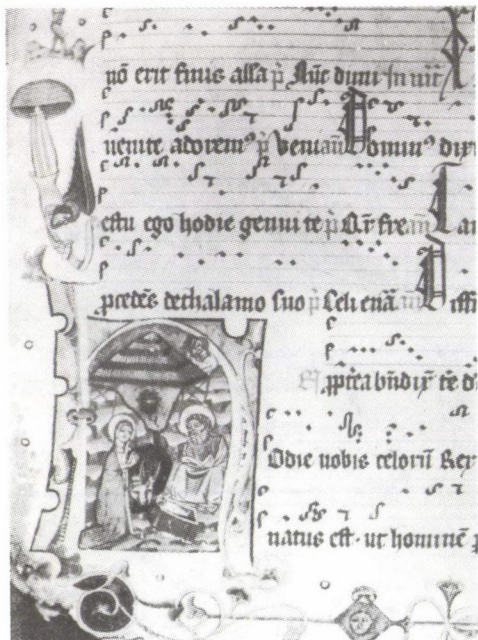 nō erit finis alla p̄ Nūc dimi In uit
uenite adorem⁹ p̄ Veniaū Domin⁹ dix
es tu ego hodie genui te p̄ Q̄r fre
p̄cedēs de thalamo suo p̄ Celi enā
p̄pt̄ea bn̄dix̄ te d
Odie nobis celorū Rex
natus est · ut hominē p